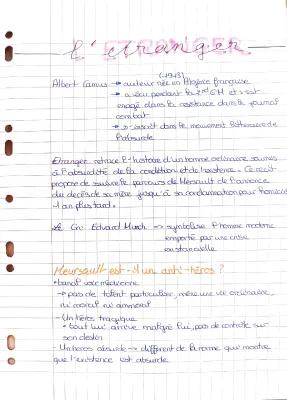 L'étranger
(1913)
Albert Camus → auteur née en Algérie française
→ a vécu pendant la 2nd GM et s'est
engagé dans la résistance dans le journal
combat
→ s'inscrit dans le mouvement littéraire de
l'absurde
Etranger retrace l'histoire d'un homme ordinaire soumis
à l'absurdité de la condition et de l'existence. Ce récit
propose de suivre le parcours de Meursault de l'annonce
du décès de sa mère jusqu'à sa condamnation pour homicide
1 an plus tard.
Cri Edvard Munch → symbolise l'homme moderne
emporté par une crise
existancielle
Meursault est-il un anti-héros ?
• banal voir médiocre
→ pas de talent particulier, mène une vie ordinaire,
ni moral ni immoral
- Un héros tragique
• tout lui arrive malgré lui, pas de contrôle sur
son destin
- Un héros absurde → différent de la norme qui montre
que l'existence est absurde